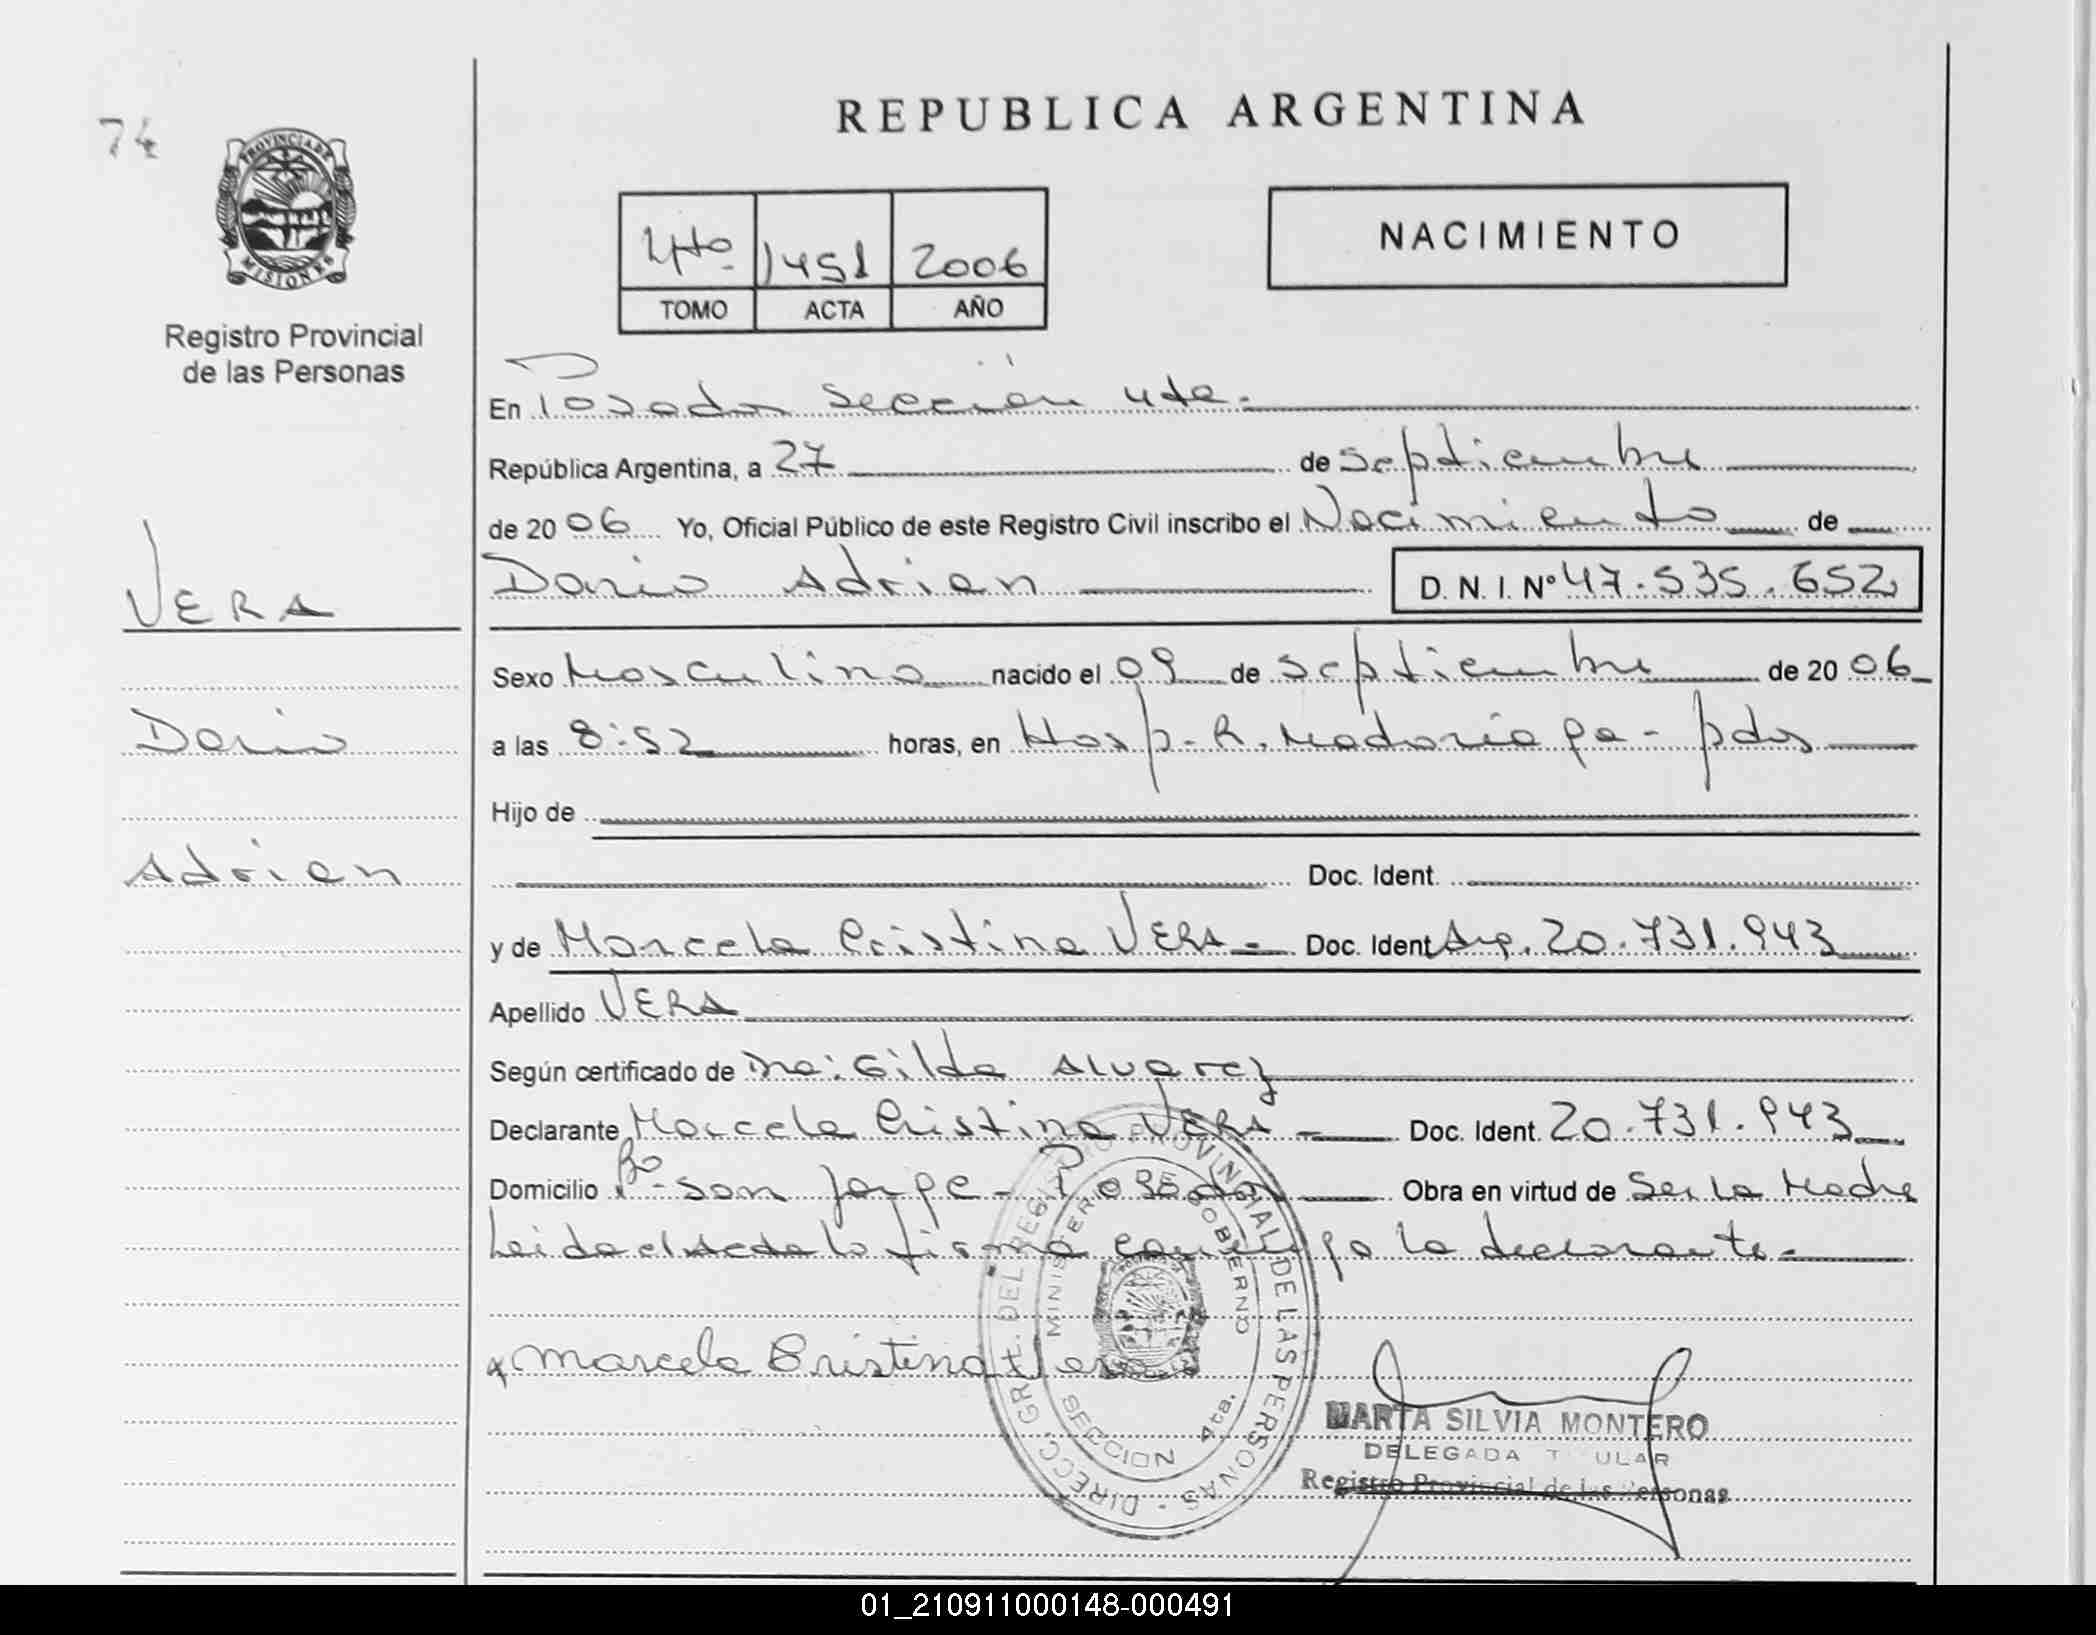 REPUBLICA ARGENTINA
74
PROVINCIA DE MISIONES
Registro Provincial
de las Personas
4to. 1451 2006
TOMO ACTA AÑO
NACIMIENTO
En Posadas Sección 4ta.
República Argentina, a 27 de Septiembre
de 2006 Yo, Oficial Público de este Registro Civil inscribo el Nacimiento de
Dario Adrian D. N. I. Nº 47.535.652
VERA
Sexo Masculino nacido el 09 de Septiembre de 2006
Dario
a las 8:52 horas, en Hosp. R. Madariaga - pdas
Hijo de
Adrian
Doc. Ident.
y de Marcela Cristina VERA - Doc. Ident Arg. 20.731.943
Apellido VERA
Según certificado de Dra: Gilda Alvarez
Declarante Marcela Cristina VERA - Doc. Ident. 20.731.943
Domicilio Bº San Jorge - Posadas Obra en virtud de Ser la Madre
Leida el Acta la firma conmigo la declarante.-
x Marcela Cristina Vera
DIRECC. GRAL. DEL REGISTRO PROVINCIAL DE LAS PERSONAS -
MINISTERIO DE GOBIERNO
SECCION 4ta.
MARTA SILVIA MONTERO
DELEGADA T ULAR
Registro Provincial de las Personas
01_210911000148-000491